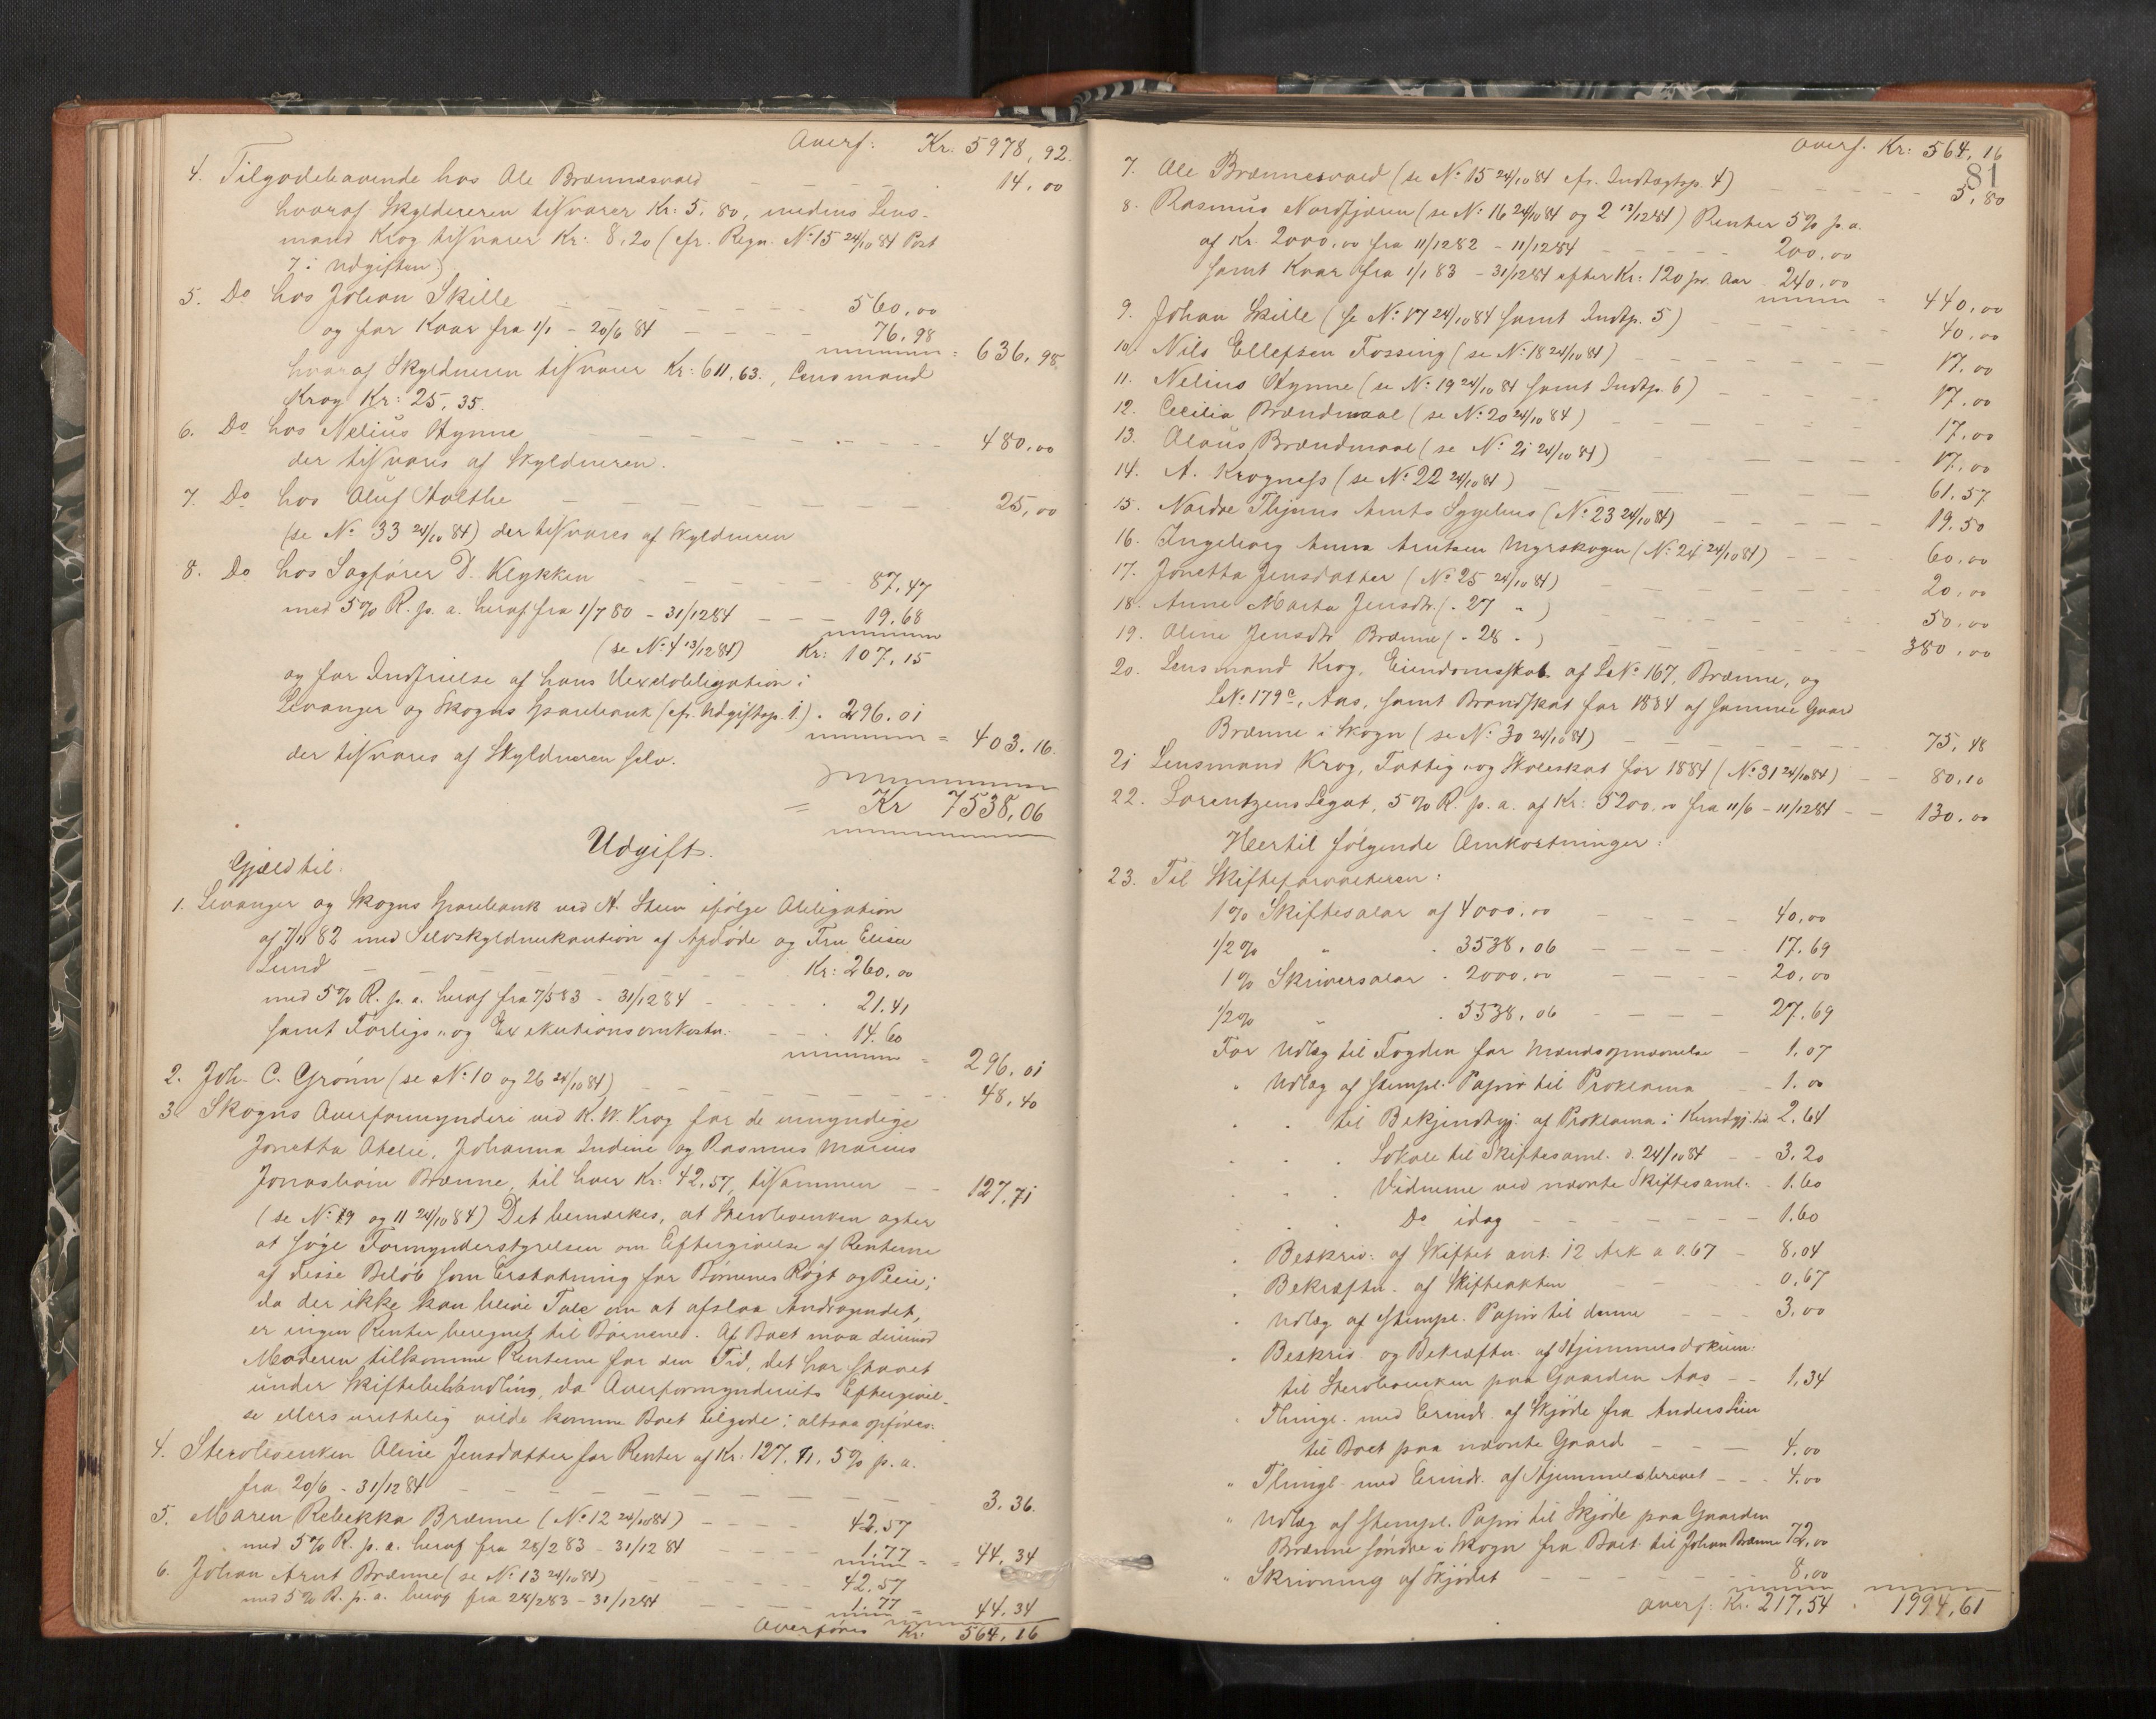 Overf: Kr: 5978,92.
4. Tilgodehavende hos Ole Brænnesvald 14,00
hvoraf Skylderen tilsvarer Kr: 5,80, medens Lens-
mand Krog tilsvarer Kr: 8,20 (cfr. Regn. No 15 24/10 84 Post
7 i Udgiften)
5. Do hos Johan Skille 560,00
og for Kaar fra 1/1 - 20/6 84 76,98 = 636,98
hvoraf Skyldneren tilsvarer Kr: 611,63., Lensmand
Krog Kr: 25,35.
6. Do hos Nelius Hynne 480,00
der tilsvares af Skyldneren.
7. Do hos Oluf Holthe 25,00
(se No 33 24/10 84) der tilsvares af Skyldneren
8. Do hos Sagfører D. Klykken 87,47
med 5% R. p. a. heraf fra 1/7 80 - 31/12 84 19,68
(se No 4 13/12 84) Kr: 107,15
og for Indfrielse af hans Vexelobligation i
Levanger og Skogns Sparebank (cfr. Udgiftsp. 1.) . 296,01 = 403,16.
der tilsvares af Skyldneren selv.
= Kr 7538,06
Udgift.
Gjæld til:
1. Levanger og Skogns Sparebank ved A. Steen ifølge Obligation
af 7/11 82 med Selvskyldnerkaution af Afdøde og Fru Elisa
Lund Kr: 260,00
med 5% R. p. a. heraf fra 7/5 83 - 31/12 84 21,41
samt Forligs- og Exekutionsomkostn. 14,60 = 296,01
2. Joh. C. Grønn (se No 10 og 26 24/10 84) 48,40
3. Skogns Overformynderi ved K. W. Krog for de umyndige
Jonetta Otelie, Johanna Indine og Rasmus Marius
Jonasbørn Brænne, til hver Kr: 42,57, tilsammen 127,71
(se No 9 og 11 24/10 84) Det bemærkes, at Stervboenken agter
at søge Formynderstyrelsen om Eftergivelse af Renterne
af disse Beløb som Erstatning for Børnenes Røgt og Pleie;
da der ikke kan blive Tale om at afslaa Andragendet,
er ingen Renter beregnet til Børnene. Af Boet maa derimod
Moderen tilkomme Renterne for den Tid, det har staaet
under Skiftebehandling, da Overformynderiets Eftergivel-
se ellers urettelig vilde komme Boet tilgode; altsaa opføres:
4. Stervboenken Oline Jensdatter for Renter af Kr: 127,71, 5% p. a.
fra 20/6 - 31/12 84 3,36.
5. Maren Rebekka Brænne (No 12 24/10 84) 42,57
med 5% R. p. a. heraf fra 28/2 83 - 31/12 84 1,77 = 44,34
6. Johan Arnt Brænne (se No 13 24/10 84) 42,57
med 5% R. p. a. heraf fra 28/2 83 - 31/12 84 1,77 = 44,34
Overføres Kr: 564,16
Overf. Kr: 564,16
81
7. Ole Brænnesvald (se No 15 24/10 84 cfr. Indtægtsp. 4) 5,80
8. Rasmus Nordfjæren (se No 16 24/10 84 og 2 13/12 84) Renter 5% p. a.
af Kr. 2000,00 fra 11/12 82 - 11/12 84 200,00
samt Kaar fra 1/1 83 - 31/12 84 efter Kr: 120 pr. Aar 240,00 = 440,00
9. Johan Skille (se No 17 24/10 84 samt Indtp. 5) 40,00
10. Nils Ellefsen Fossing (se No 18 24/10 84) 17,00
11. Nelius Hynne (se No 19 24/10 84 samt Indtp. 6) 17,00
12. Cecilia Brændmoal (se No 20 24/10 84) 17,00
13. Olaus Brændmoal (se No 21 24/10 84) 17,00
14. A. Krogness (se No 22 24/10 84) 61,57
15. Nordre Thjems Amts Sygehus (No 23 24/10 84) 19,50
16. Ingeborg Anna Arntsen Myrskogen (No 24 24/10 84) 60,00
17. Jonetta Jensdatter (No 25 24/10 84) 20,00
18. Anne Marta Jensdtr. (- 27 -) 50,00
19. Oline Jensdtr Brænne (- 28 -) 380,00
20. Lensmand Krog, Eiendomsskat. af L No 167, Brænne, og
L No 179c, Aas, samt Brandskat for 1884 af samme Gaar
Brænne i Skogn (se No 30 24/10 84) 75,48
21 Lensmand Krog, Fattig- og Skoleskat for 1884 (No 31 24/10 84) 80,10
22. Lorentzens Legat, 5% R. p. a. af Kr: 5200,00 fra 11/6 - 11/12 84 130,00
Hertil følgende Omkostninger:
23. Til Skifteforvalteren:
1% Skiftesalær af 4000,00 40,00
1/2% " . 3538,06 17,69
1% Skriversalær . 2000,00 20,00
1/2% " . 5538,06 27,69
For Udlæg til Fogden for Mandsopnævnelse 1,07
" Udlæg af stempl. Papir til Proklama 1,00
. . til Bekjendtgj. af Proklama i Kundgj.tid. 2,64
. . . Lokale til Skiftesaml. d. 24/10 84 3,20
. . . Vidnerne ved nævnte Skiftesaml. 1,60
. . . Do idag 1,60
. Beskriv: af Skiftet ant. 12 Ark a 0.67 8,04
. Bekræftn. af Skifteakten 0,67
. Udlæg af stempl. Papir til denne 3,00
. Beskriv. og Bekræftn. af Hjemmelsdokum:
til Stervboenken paa Gaarden Aas 1,34
. Thingl. med Erindr. af Skjøde fra Anders Lein
til Boet paa nævnte Gaard 4,00
" Thingl. med Erindr. af Hjemmelsbrevet 4,00
" Udlæg af stempl. Papir til Skjøde paa Gaarden
Brænne søndre i Skogn fra Boet til Johan Brænne 72,00
" Skrivning af Skjødet 8,00
Overf. Kr. 217,54 . 1994,61